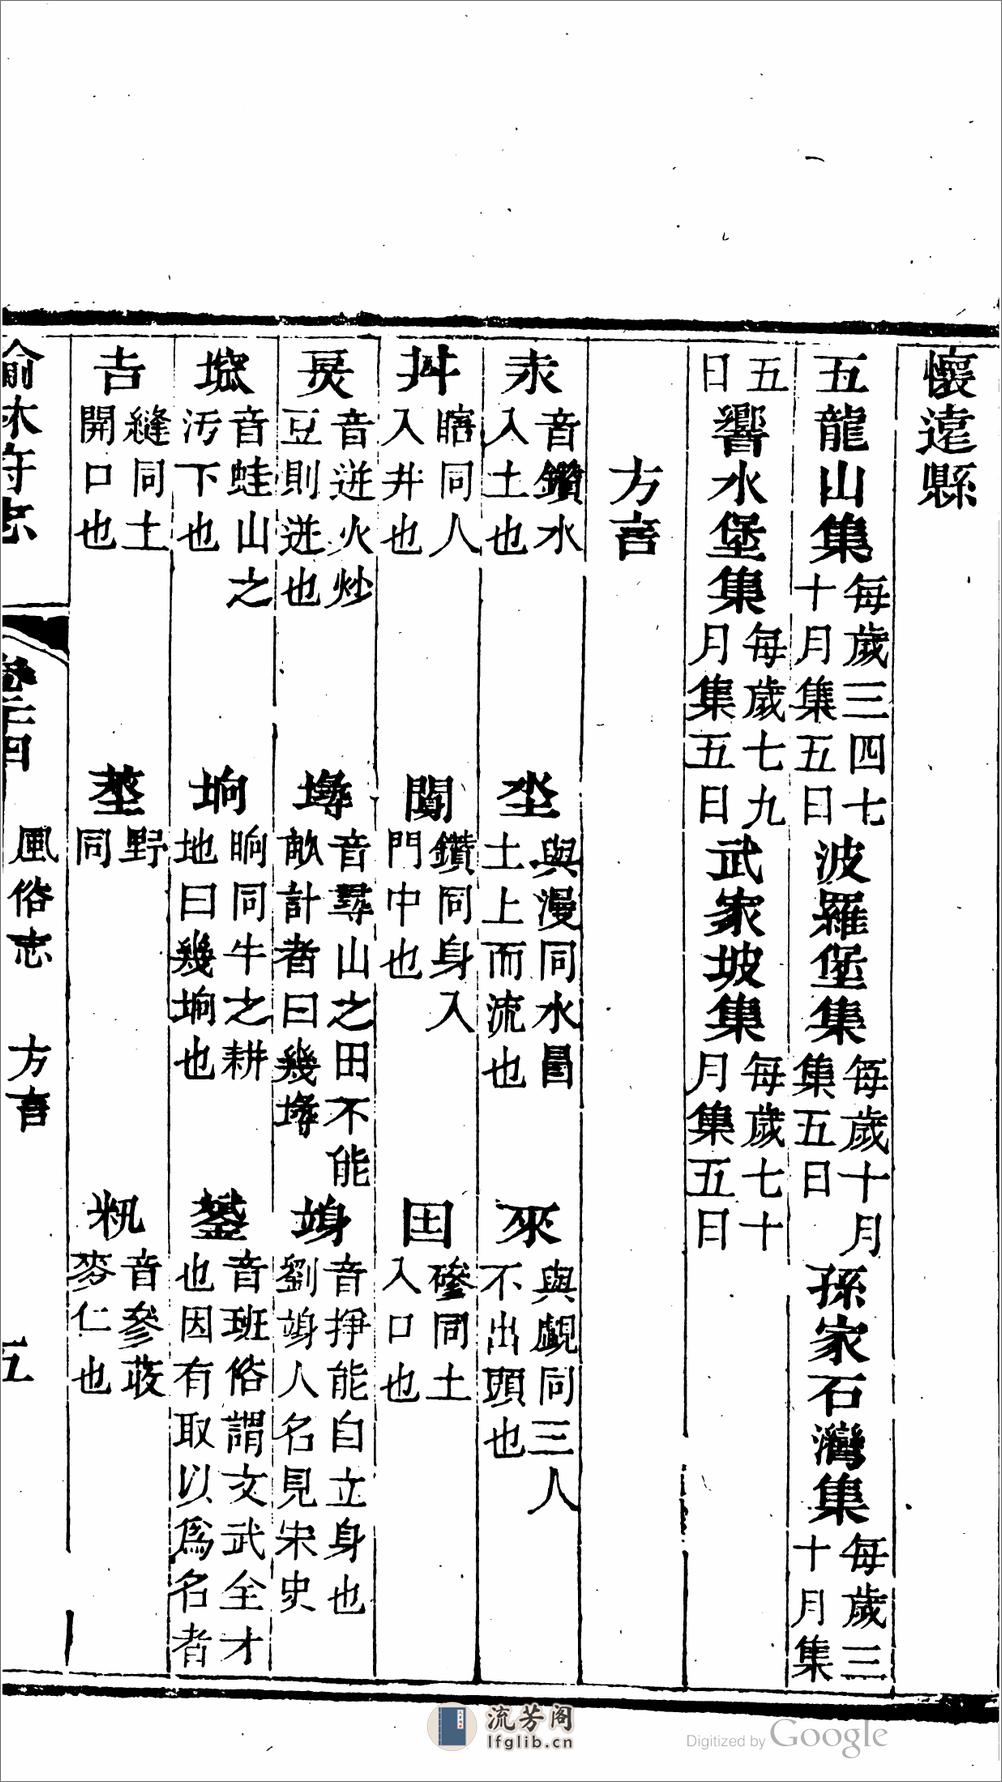 懷遠縣
五龍山集每歲三四七十月集五日波羅堡集每歲十月集五日孫家石灣集每歲三十月集
五日響水堡集每歲七九月集五日武家坡集每歲七十月集五日
方言
氽音鑽水入土也 坔與漫同水冒土上而流也 與覷同三人不出頭也
瞎同人入井也 鑽同身入門中也 囯磣同土入口也
音逬火炒豆則逬也 音尋山之田不能畝計者曰幾 竧音掙能自立身也劉竧人名見宋史
音蛙山之污下也 垧晌同牛之耕地曰幾垧也 音班俗謂文武全才也因有取以爲名者
縫同土開口也 野同 音參蔎麥仁也
榆林府志
卷二十四
風俗志 方言
五
流芳阁
lfglib.cn
Digitized by Google